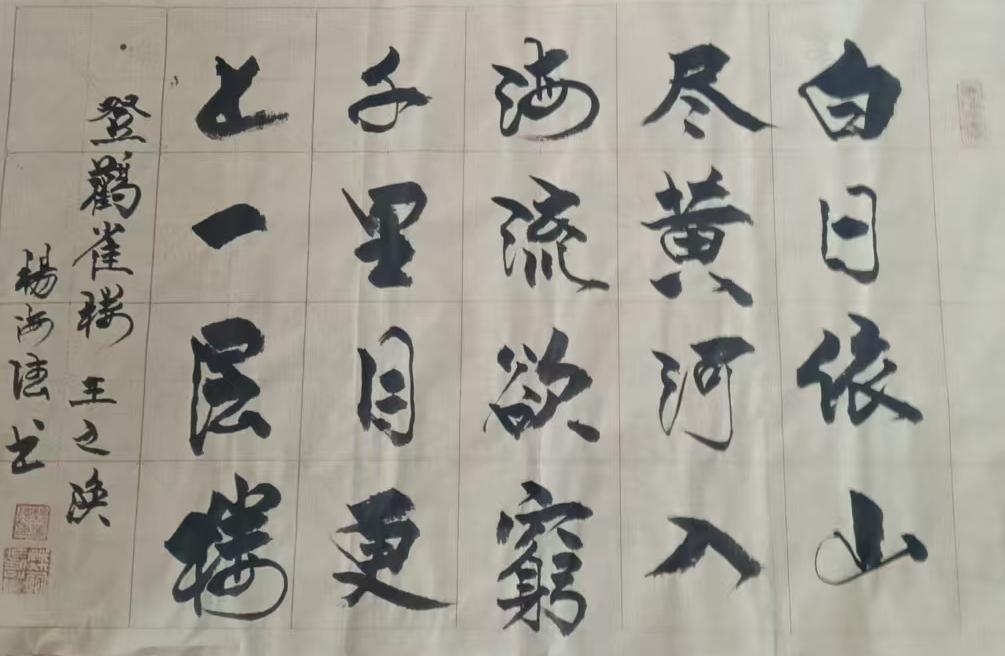 白日依山
尽黄河入
海流欲窮
千里目更
上一层楼
登鸛雀楼 王之涣
楊海 书